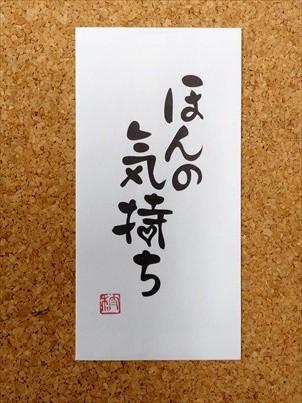 ほんの
気持ち